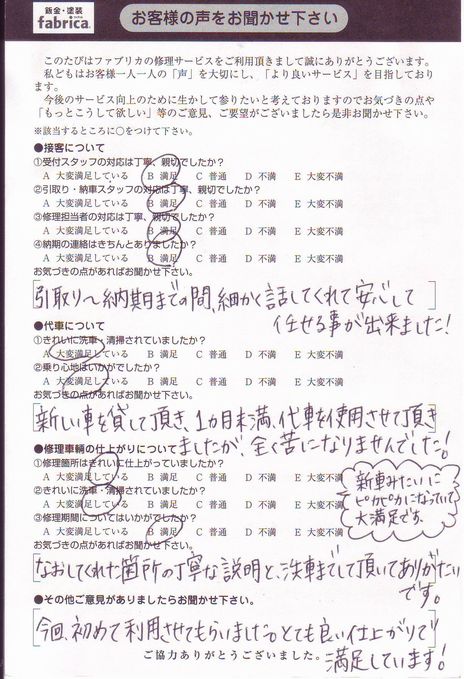 鈑金・塗装
fabrica.
お客様の声をお聞かせ下さい
このたびはファブリカの修理サービスをご利用頂きまして誠にありがとうございます。
私どもはお客様一人一人の「声」を大切にし、「より良いサービス」を目指しており
ます。
今後のサービス向上のために生かして参りたいと考えておりますのでお気づきの点や
「もっとこうして欲しい」等のご意見、ご要望がございましたら是非お聞かせ下さい。
※該当するところに○をつけて下さい。
●接客について
①受付スタッフの対応は丁寧、親切でしたか?
A 大変満足している B 満足 C 普通 D 不満 E 大変不満
②引取り・納車スタッフの対応は丁寧、親切でしたか?
A 大変満足している B 満足 C 普通 D 不満 E 大変不満
③修理担当者の対応は丁寧、親切でしたか?
A 大変満足している B 満足 C 普通 D 不満 E 大変不満
④納期の連絡はきちんとありましたか?
A 大変満足している B 満足 C 普通 D 不満 E 大変不満
お気づきの点があればお聞かせ下さい。
引取り〜納期までの間、細かく話してくれて安心して
任せる事が出来ました!
●代車について
①きれいに洗車・清掃されていましたか?
A 大変満足している B 満足 C 普通 D 不満 E 大変不満
②乗り心地はいかがでしたか?
A 大変満足している B 満足 C 普通 D 不満 E 大変不満
お気づきの点があればお聞かせ下さい。
新しい車を貸して頂き、1カ月未満、代車を使用させて頂き
ましたが、全く苦になりませんでした!
●修理車輌の仕上がりについて
①修理箇所はきれいに仕上がっていましたか?
A 大変満足している B 満足 C 普通 D 不満 E 大変不満
②きれいに洗車・清掃されていましたか?
A 大変満足している B 満足 C 普通 D 不満 E 大変不満
③修理期間についてはいかがでしたか?
A 大変満足している B 満足 C 普通 D 不満 E 大変不満
新車みたいに
ピカピカになっていて
大満足です。
お気づきの点があればお聞かせ下さい。
なおしてくれた箇所の丁寧な説明と、洗車までして頂いてありがたい
です。
●その他ご意見がありましたらお聞かせ下さい。
今回、初めて利用させてもらいました。とても良い仕上がりで
満足しています!
ご協力ありがとうございました。